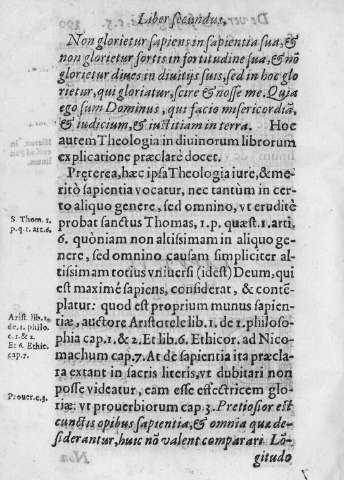 Liber secundus.
Non glorietur sapiens in sapientia sua, &
non glorietur fortis in fortitudine sua, & nõ
glorietur diues in diuitijs suis, sed in hoc glo
rietur, qui gloriatur, scire & nosse me. Quia
ego sum Dominus, qui facio misericordiã,
& iudicium, & iustitiam in terra. Hoc
autem Theologia in diuinorum librorum
explicatione præclarè docet.
Pręterea, hæc ipsa Theologia iure, & me-
ritò sapientia vocatur, nec tantùm in cer-
to aliquo genere, sed omnino, vt eruditè
S. Thom. 1. probat sanctus Thomas, 1. p. quæst. 1. arti.
p. q. 1. art. 6. 6. quòniam non altissimam in aliquo ge-
nere, sed omnino causam simpliciter al-
tissimam totius vniuersi (idest) Deum, qui
est maximè sapiens, considerat, & contẽ-
platur: quod est proprium munus sapien-
Arist. lib. 1. tiæ, auctore Aristotele lib. 1. de 1. philoso-
de. 1. philo. phia cap. 1. & 2. Et lib. 6. Ethicor. ad Nico-
c. 1. & 2.
Et 6. Ethic. machum cap. 7. At de sapientia ita præcla-
cap. 7. ra extant in sacris literis, vt dubitari non
posse videatur, eam esse effectricem glo-
Prouer. c. 3. riæ: vt prouerbiorum cap. 3. Pretiosior est
cunctis opibus sapientia, & omnia quæ de-
siderantur, huic nõ valent comparari Lõ-
gitudo